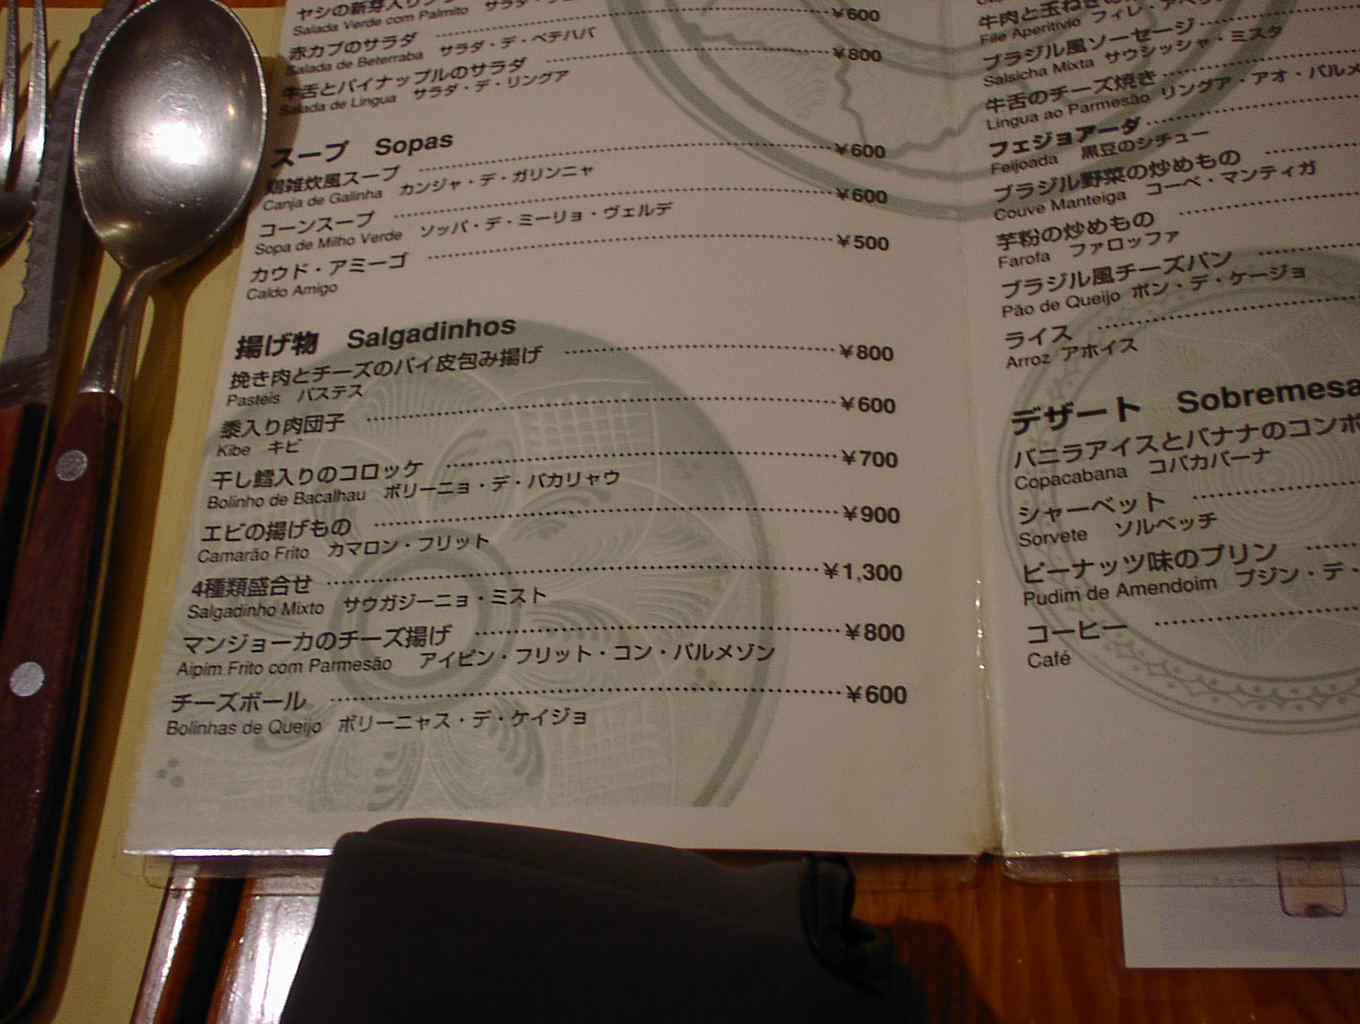 ヤシの新芽入り
Salada Verde com Palmito サラダ・
¥600
赤カブのサラダ
Salada de Beterraba サラダ・デ・ベテハバ
¥800
牛舌とパイナップルのサラダ
Salada de Lingua サラダ・デ・リングア
スープ Sopas
鶏雑炊風スープ ¥600
Canja de Galinha カンジャ・デ・ガリンニャ
コーンスープ ¥600
Sopa de Milho Verde ソッパ・デ・ミーリョ・ヴェルデ
カウド・アミーゴ ¥500
Caldo Amigo
揚げ物 Salgadinhos
挽き肉とチーズのパイ皮包み揚げ ¥800
Pasteis パステス
黍入り肉団子 ¥600
Kibe キビ
干し鱈入りのコロッケ ¥700
Bolinho de Bacalhau ボリーニョ・デ・バカリャウ
エビの揚げもの ¥900
Camarão Frito カマロン・フリット
4種類盛合せ ¥1,300
Salgadinho Mixto サウガジーニョ・ミスト
マンジョーカのチーズ揚げ ¥800
Aipim Frito com Parmesão アイピン・フリット・コン・パルメゾン
チーズボール ¥600
Bolinhas de Queijo ボリーニャス・デ・ケイジョ
牛肉と玉ねぎ
File Aperitivio フィレ・
ブラジル風ソーセージ
Salsicha Mixta サウシッシャ・ミスタ
牛舌のチーズ焼き
Lingua ao Parmesão リングア・アオ・パルメ
フェジョアーダ
Feijoada 黒豆のシチュー
ブラジル野菜の炒めもの
Couve Manteiga コーベ・マンティガ
芋粉の炒めもの
Farofa ファロッファ
ブラジル風チーズパン
Pão de Queijo ポン・デ・ケージョ
ライス
Arroz アホイス
デザート Sobremesa
バニラアイスとバナナのコンポ
Copacabana コパカバーナ
シャーベット
Sorvete ソルベッチ
ピーナッツ味のプリン
Pudim de Amendoim プジン・デ・
コーヒー
Café